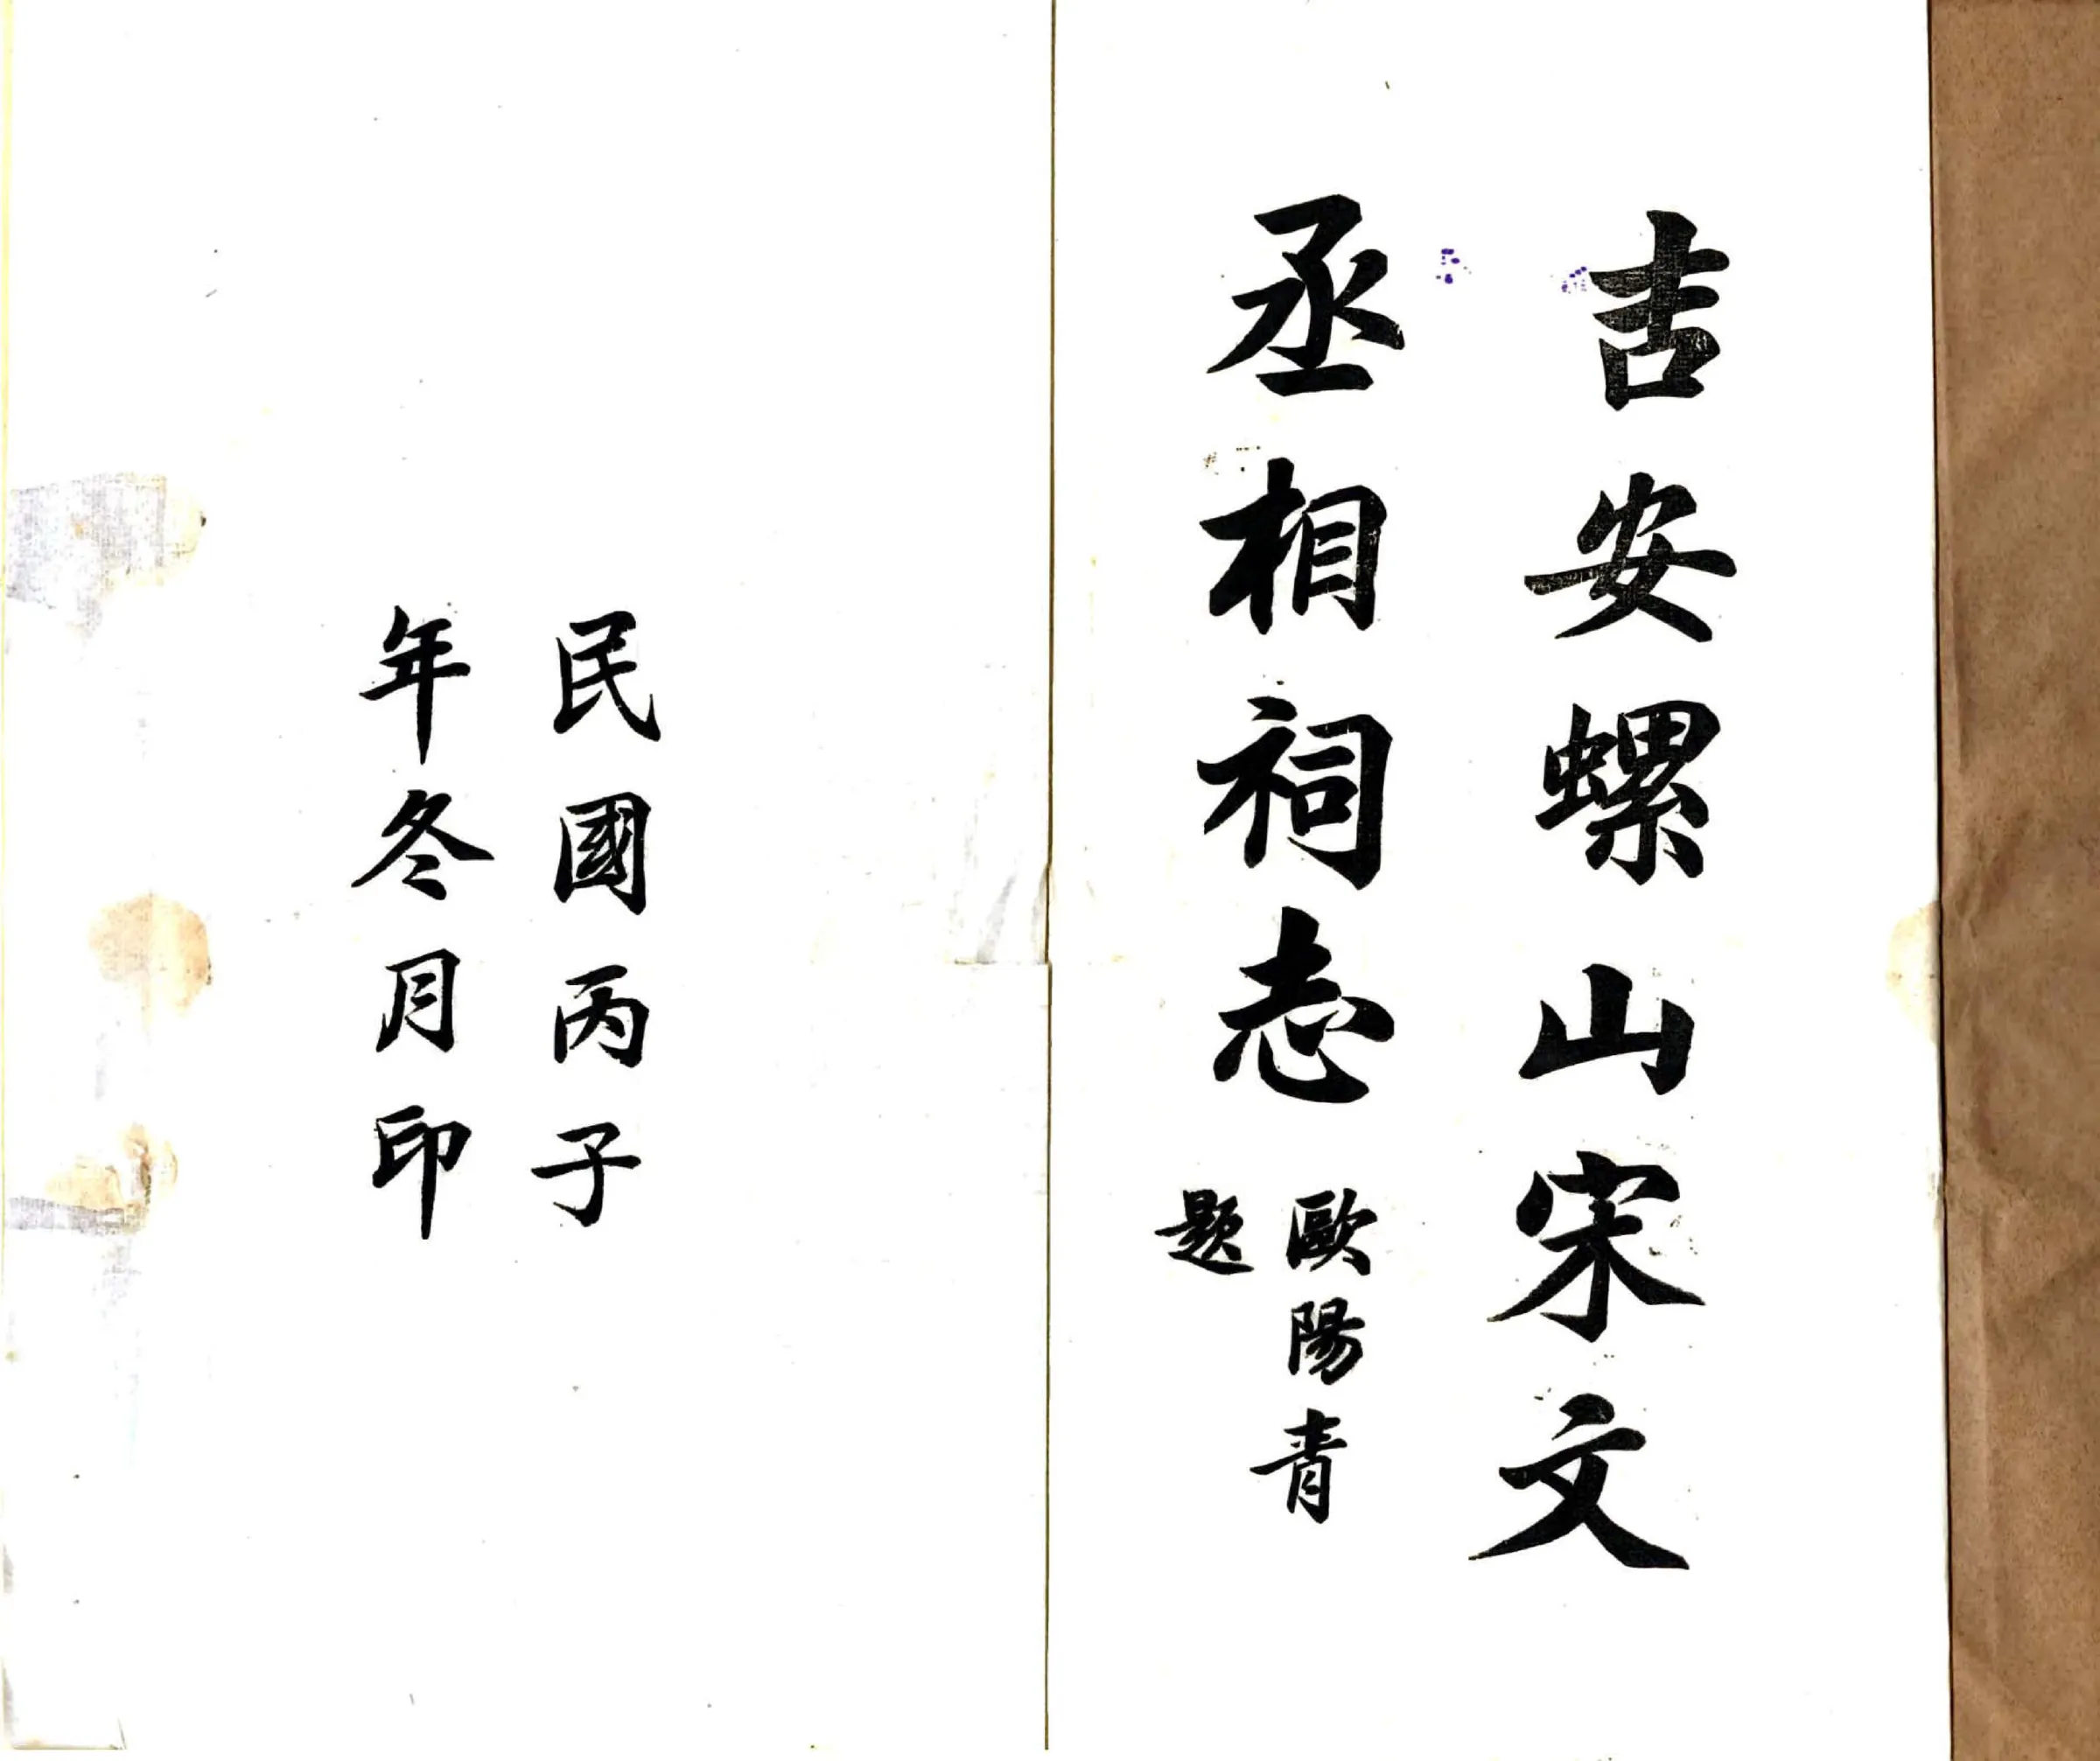 吉安螺山宋文
丞相祠志
歐陽青
題
民國丙子
年冬月印